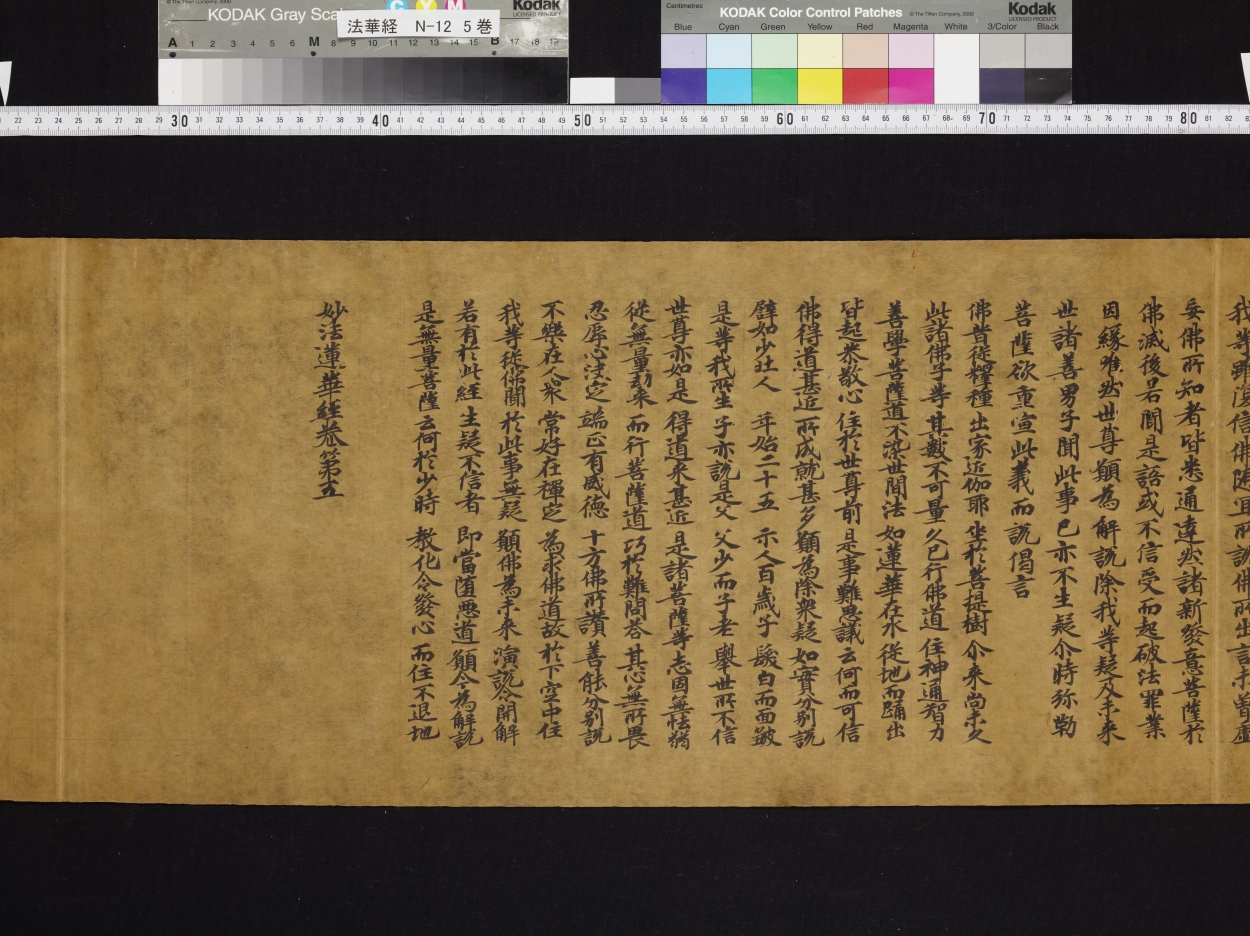 KODAK Gray Scale
法華経 N-12 5巻
Kodak
LICENSED PRODUCT
© The Tiffen Company, 2000
C Y M
A 1 2 3 4 5 6 M 8 9 10 11 12 13 14 15 B 17 18 19
Centimetres
KODAK Color Control Patches
© The Tiffen Company, 2000
Kodak
LICENSED PRODUCT
Blue Cyan Green Yellow Red Magenta White 3/Color Black
22 23 24 25 26 27 28 29 30 31 32 33 34 35 36 37 38 39 40 41 42 43 44 45 46 47 48 49 50 51 52 53 54 55 56 57 58 59 60 61 62 63 64 65 66 67 68 69 70 71 72 73 74 75 76 77 78 79 80 81 82
我等雖復信佛隨宜所說佛所出言未曾虛
妄佛所知者皆悉通達然諸新發意菩薩於
佛滅後若聞是語或不信受而起破法罪業
因緣唯然世尊願為解說除我等疑及未來
世諸善男子聞此事已亦不生疑尒時弥勒
菩薩欲重宣此義而說偈言
佛昔從釋種 出家近伽耶 坐於菩提樹 尒來尚未久
此諸佛子等 其數不可量 久已行佛道 住神通智力
善學菩薩道 不染世間法 如蓮華在水 從地而踊出
皆起恭敬心 住於世尊前 是事難思議 云何而可信
佛得道甚近 所成就甚多 願為除衆疑 如實分別說
譬如少壯人 年始二十五 示人百歲子 髮白而面皺
是等我所生 子亦說是父 父少而子老 舉世所不信
世尊亦如是 得道來甚近 是諸菩薩等 志固無怯弱
從無量劫來 而行菩薩道 巧於難問答 其心無所畏
忍辱心決定 端正有威德 十方佛所讚 善能分別說
不樂在人衆 常好在禪定 為求佛道故 於下空中住
我等從佛聞 於此事無疑 願佛為未來 演說令開解
若有於此經 生疑不信者 即當墮惡道 願今為解說
是無量菩薩 云何於少時 教化令發心 而住不退地
妙法蓮華經卷第五